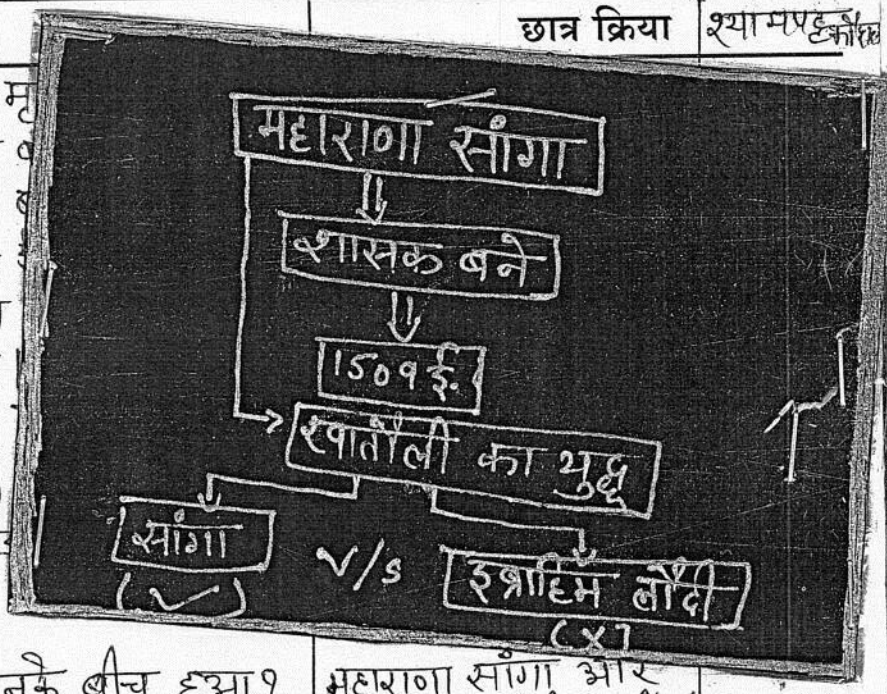 छात्र क्रिया श्यामपट्ट कौशल
महाराणा सांगा
शासक बने
1509 ई.
खातौली का युद्ध
सांगा v/s इब्राहिम लोदी
(✓) (x)
बीच हुआ? महाराणा सांगा और